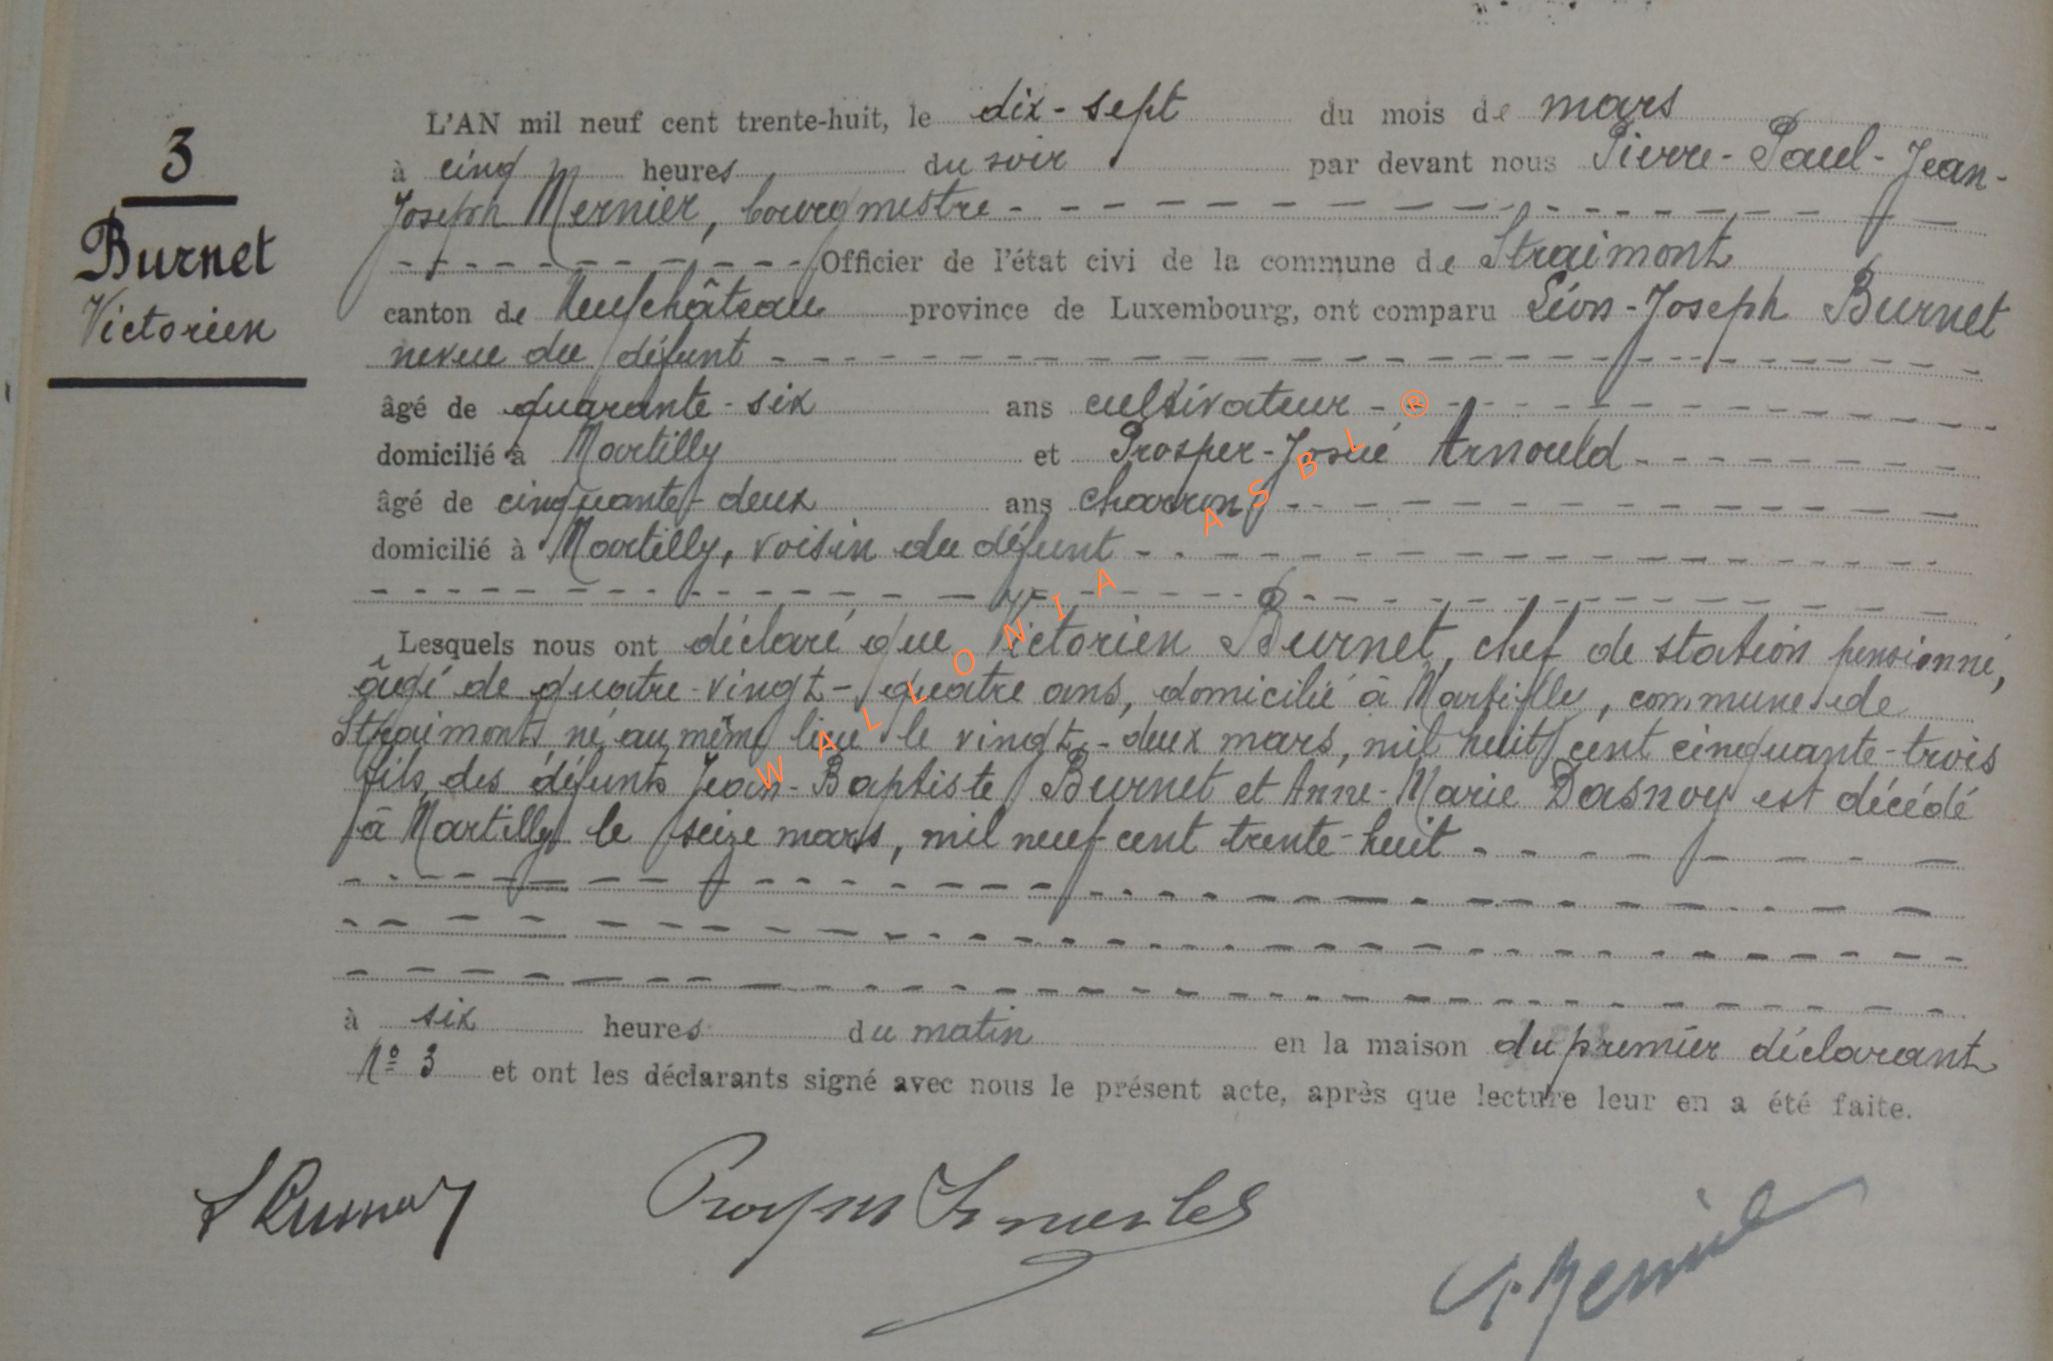 3
Burnet
Victorien
L'AN mil neuf cent trente-huit, le dix-sept du mois de mars
à cinq heures du soir par devant nous Pierre-Paul-Jean-
Joseph Mernier, bourgmestre
Officier de l'état civi de la commune de Straimont
canton de Neufchâteau province de Luxembourg, ont comparu Léon-Joseph Burnet
neveu du défunt
âgé de quarante-six ans cultivateur
domicilié à Martilly et Prosper-Josué Arnould
âgé de cinquante-deux ans charron
domicilié à Martilly, voisin du défunt
Lesquels nous ont déclaré que Victorien Burnet, chef de station pensionné,
âgé de quatre-vingt-quatre ans, domicilié à Martilly, commune de
Straimont, né au même lieu le vingt-deux mars, mil huit cent cinquante-trois
fils des défunts Jean-Baptiste Burnet et Anne-Marie Dasnoy est décédé
à Martilly le seize mars, mil neuf cent trente-huit
à six heures du matin en la maison du premier déclarant
N° 3 et ont les déclarants signé avec nous le présent acte, après que lecture leur en a été faite.
WALLONIA ASBL ®